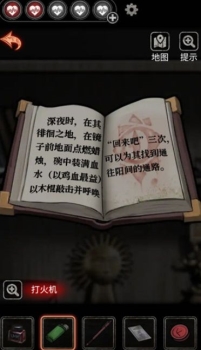 地图
提示
深夜时，在其
徘徊之地，在镜
子前地面点燃蜡
烛，碗中装满血
水（以鸡血最益）
以木棍敲击并呼唤
“回来吧”三次，
可以为其找到通
往阳间的通路。
打火机